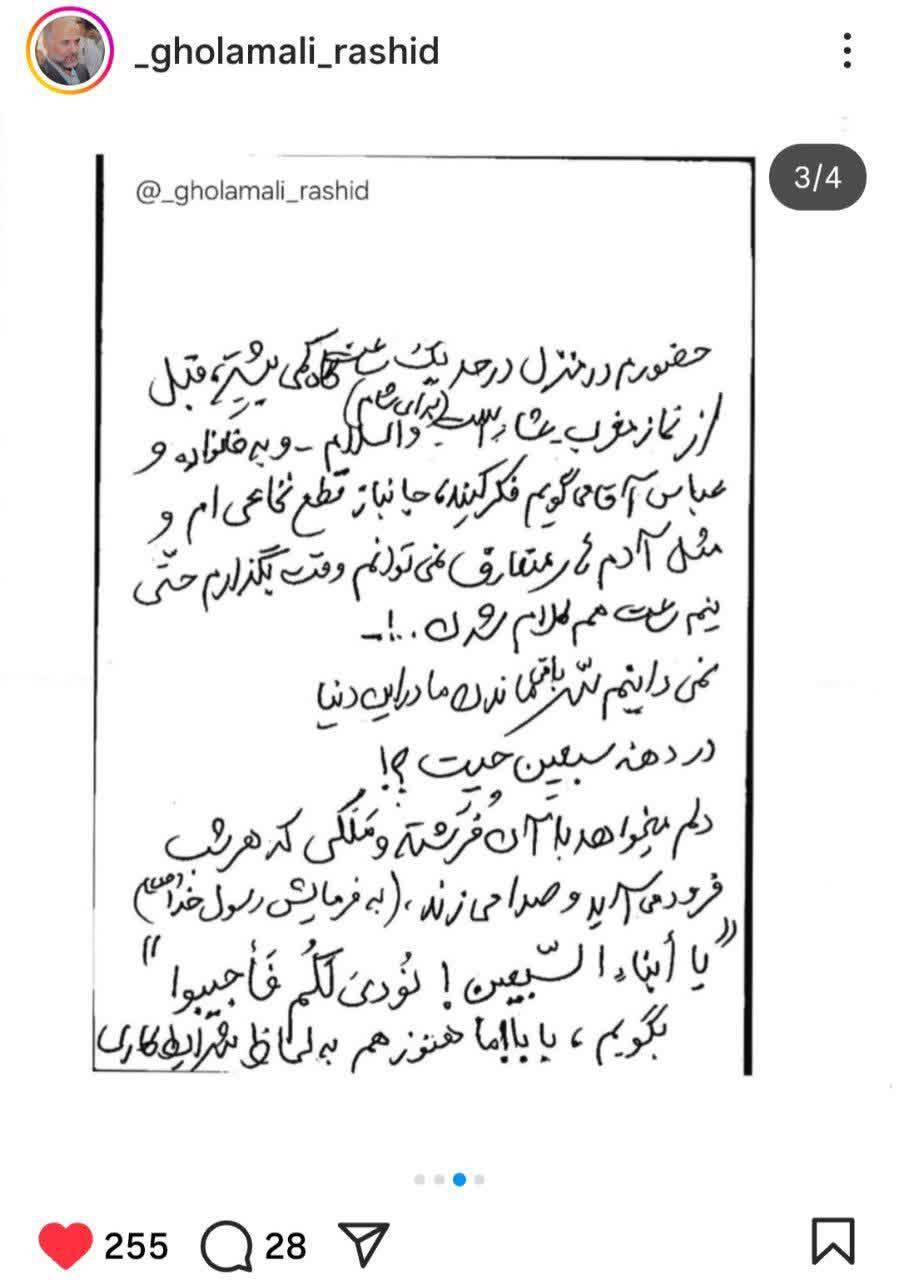 _gholamali_rashid
3/4
@_gholamali_rashid
حضورم در منزل در حد یک ساعت گاه کمی بیشتر، قبل
از نماز مغرب و عشاء است (برای شام) والسلام - و به خانواده و
عباس آقا می گویم فکر کنید، جانباز قطع نخاعی ام و
مثل آدم های متعارف نمی توانم وقت بگذارم حتّی
نیم ساعت هم کلام شدن ..!-
نمی دانیم سّر باقیماندن ما در این دنیا
در دهنه سبعین چیست ؟!
دلم میخواهد با آن فُرَشته و مَلَکی که هر شب
فرود می آید و صدا می زند، (به فرمایش رسول خدا (ص))
"یا أبناء السّبعین ! نُودیَ لَکُم فَأجیبوا"
بگویم، یا بابا ما هنوز هم به لحاظ شرایط کاری
255
28